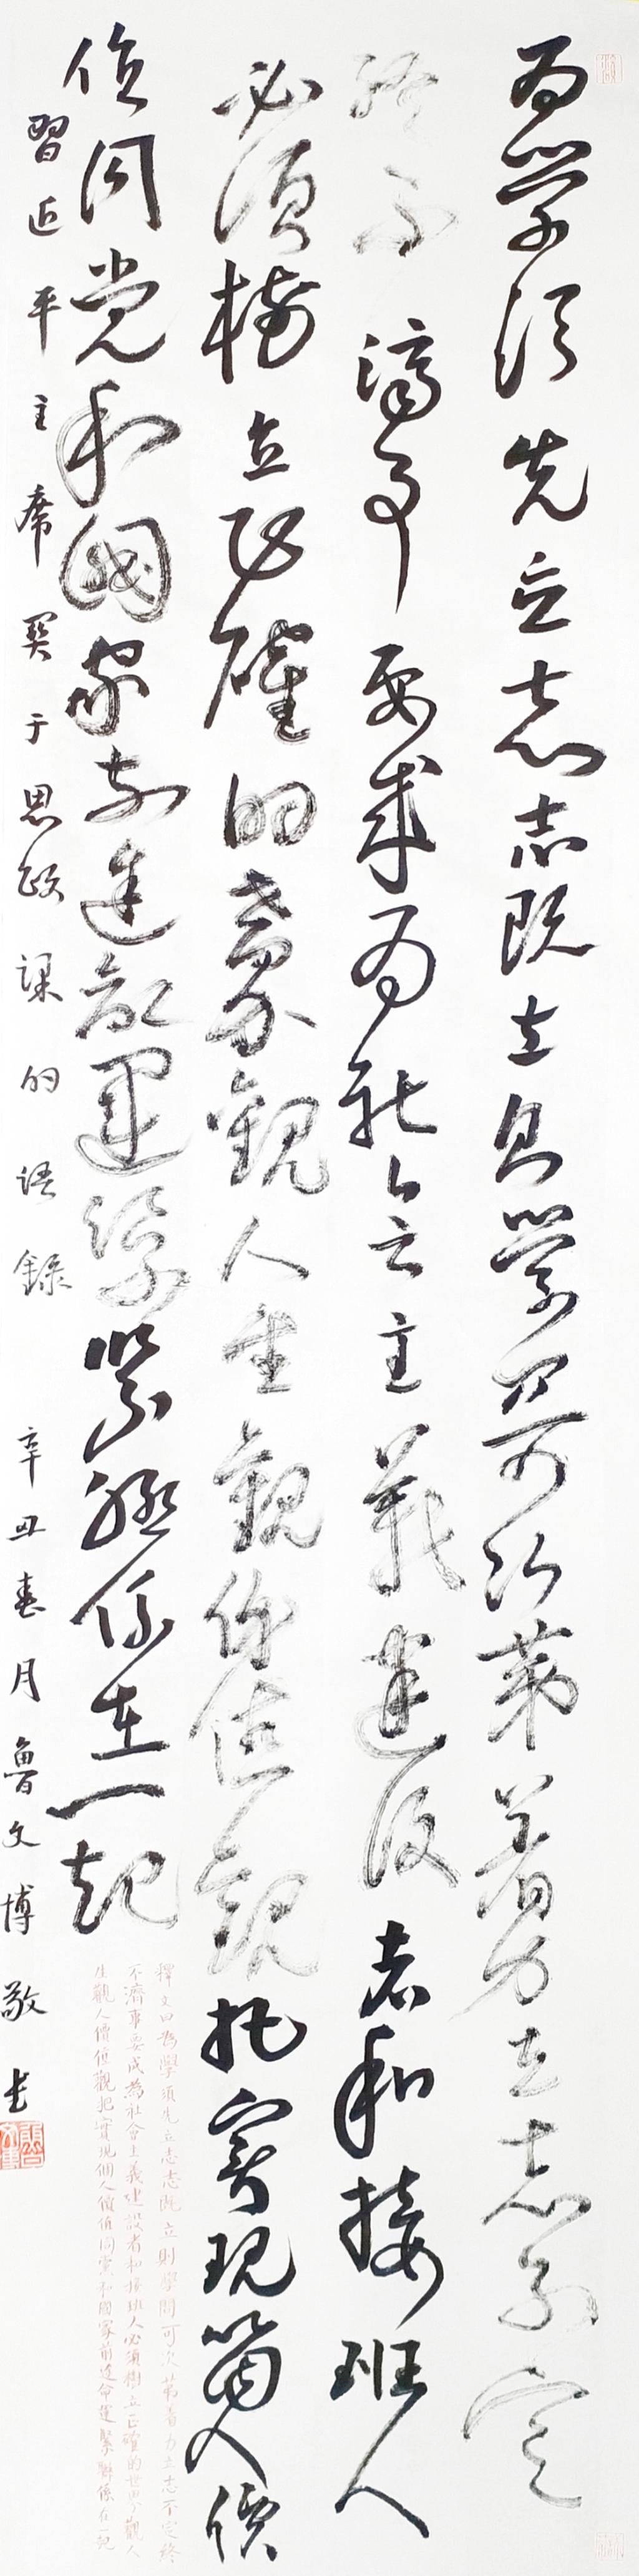 为學须先立志志既立則學問可次第着力立志不定
終不濟事要成为社會主義建設者和接班人
必須樹立正確的世界觀人生觀價值觀把實現個人價
值同党和國家前途命運緊緊聯係在一起
習近平主席関于思政課的語錄 辛丑春月魯文博敬书
釋文曰為學須先立志志既立則學問可次第着力立志不定終
不濟事要成為社會主義建設者和接班人必須樹立正確的世界觀人
生觀人價值觀把實現個人價值同黨和國家前途命運緊聯係在一起